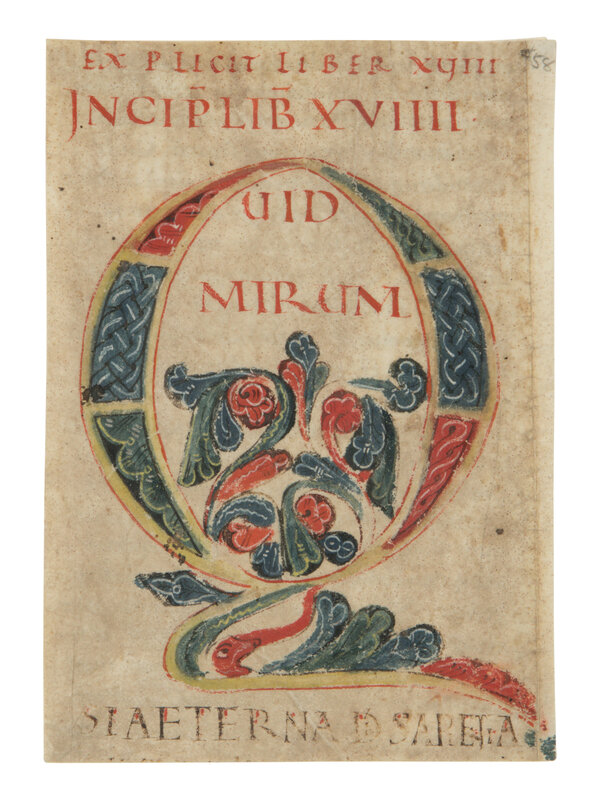 EXPLICIT LIBER XVIII
458
INCIP̄ LIB̄ XVIIII
QUID
MIRUM
SI AETERNA DĪ SAPIENTIA